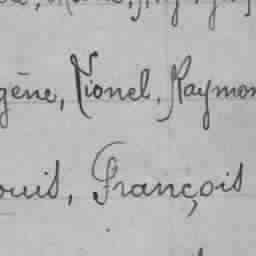 gène, Lionel, Raymon
ouis, François